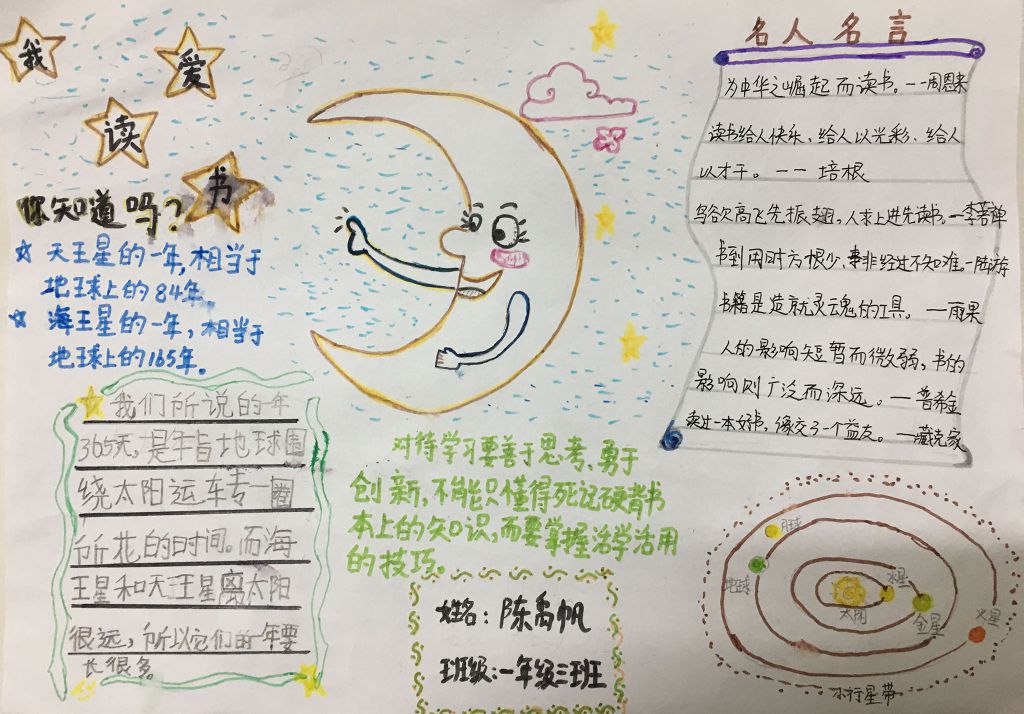 我爱读书
你知道吗？
☆ 天王星的一年，相当于
地球上的84年。
☆ 海王星的一年，相当于
地球上的165年。
我们所说的一年
365天，是指地球围
绕太阳运转一圈
所花的时间。而海
王星和天王星离太阳
很远，所以它们的一年要
长很多。
对待学习要善于思考、勇于
创新，不能只懂得死记硬背书
本上的知识，而要掌握活学活用
的技巧。
姓名：陈禹帆
班级：一年级三班
名人名言
为中华之崛起而读书。——周恩来
读书给人快乐、给人以光彩、给人
以才干。——培根
鸟欲高飞先振翅，人求上进先读书。—李若单
书到用时方恨少、事非经过不知难。—陆游
书籍是造就灵魂的工具。—雨果
人的影响短暂而微弱，书的
影响则广泛而深远。—普希金
读过一本好书，像交了一个益友。—臧克家
月球
地球
水星
太阳
金星
火星
小行星带